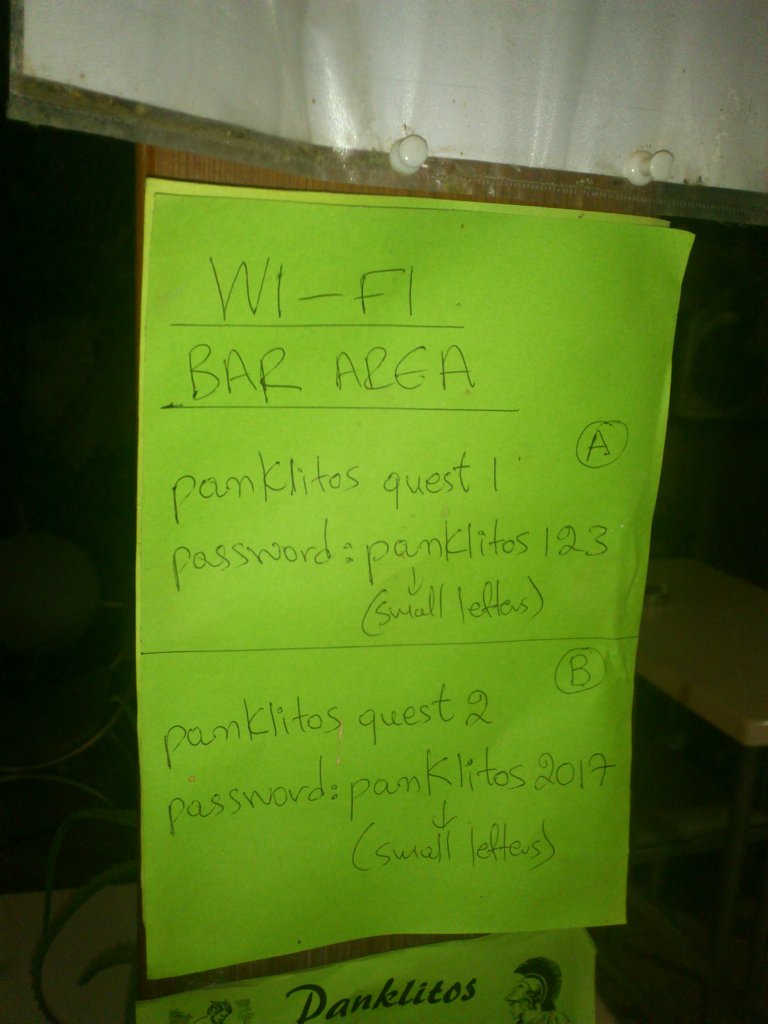 WI-FI
BAR AREA
A
panklitos quest 1
password: panklitos 123
(small letters)
B
panklitos quest 2
password: panklitos 2017
(small letters)
Panklitos